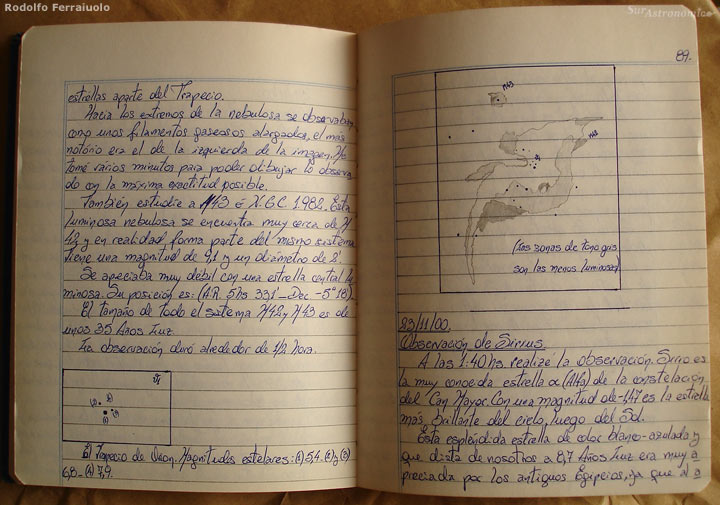 Rodolfo Ferraiuolo
SurAstronómico
estrellas aparte del Trapecio.
Hacia los extremos de la nebulosa se observaban
como unos filamentos gaseosos alargados, el mas
notório era el de la izquierda de la imagen. Me
tomé vários minutos para poder dibujar lo observa
do con la máxima exactitud posible.
También estudie a M43 ó N.G.C. 1982. Esta
luminosa nebulosa se encuentra muy cerca de M
42 y en realidad forma parte del mismo sistema
Tiene una magnitud de 9,1 y un diámetro de 2'
Se apreciaba muy débil con una estrella central lu
minosa. Su posición es: (A.R. 5hs 33' - Dec. -5º 18').
El tamaño de todo el sistema M42 y M43 es de
unos 35 Años Luz.
La observación duró alrededor de 1/2 hora.
(2)
(3)
(1)
El Trapecio de Orion. Magnitudes estelares: (1) 5,4. (2) y (3)
6,8 - (4) 7,9.
89.
M43
M42
(Las zonas de tono gris
son las menos luminosas)
23/11/00
Observación de Sirius.
A las 1:40 hs realizé la observación. Sirio es
la muy conocida estrella α (Alfa) de la constelación
del Can Mayor. Con una magnitud de -1,47 es la estrella
más brillante del cielo, luego del Sol.
Esta espléndida estrella de color blanco-azulada y
que dista de nosotros a 8,7 Años Luz era muy a
preciada por los antiguos Egipcios, ya que al a